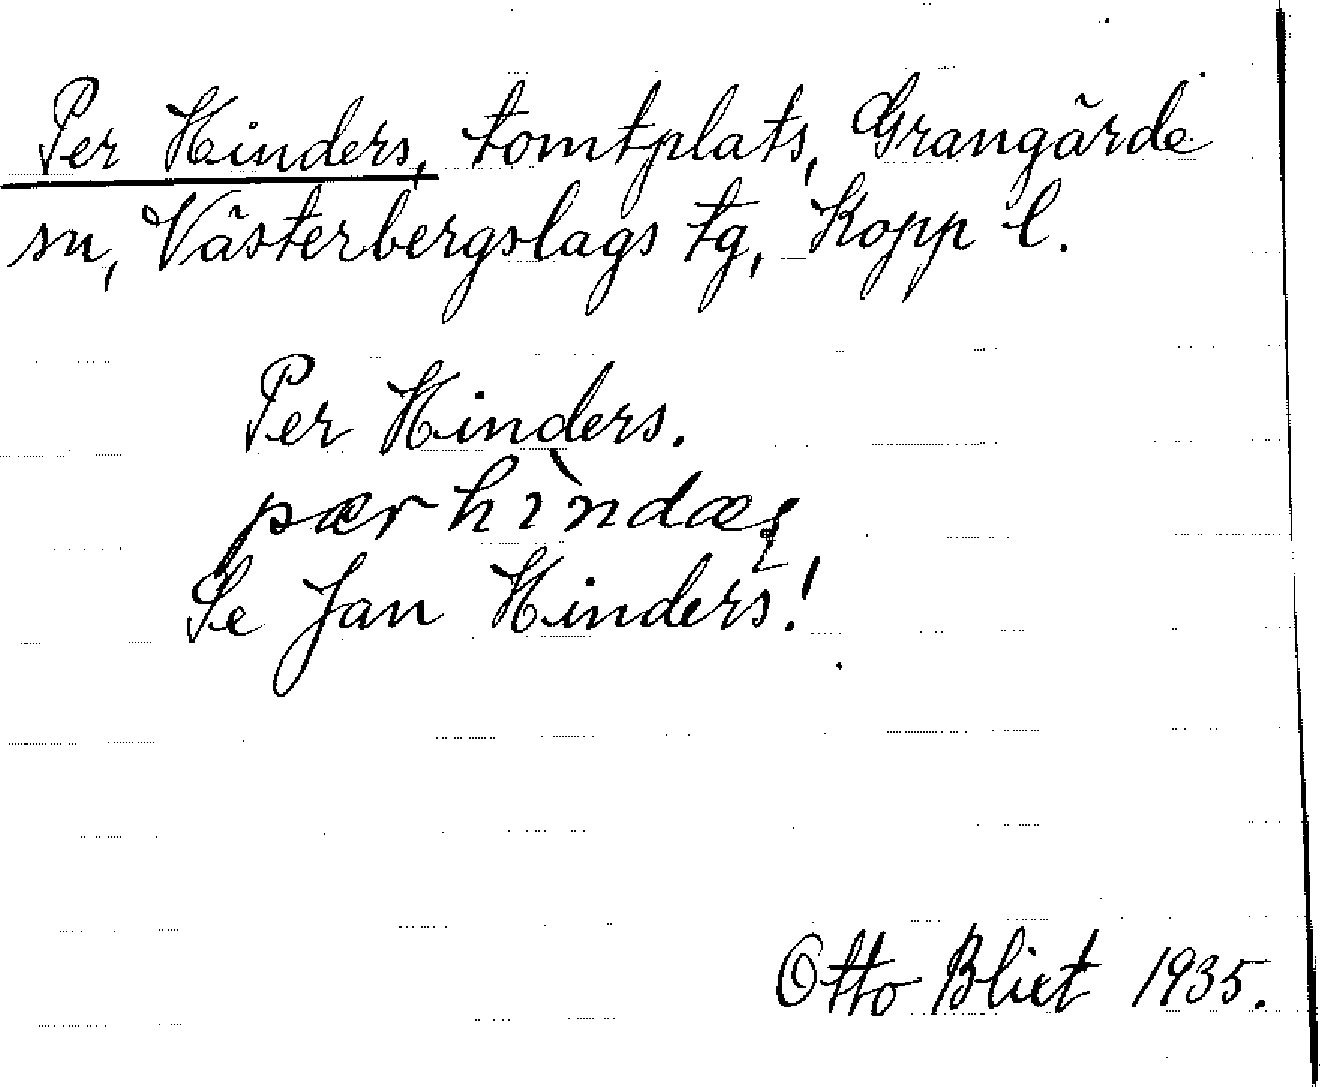 Per Hinders, tomtplats, Grangärde
sn, Västerbergslags tg, Kopp l.
Per Hinders.
pær hìndæʂ
Se Jan Hinders!
Otto Blixt 1935.